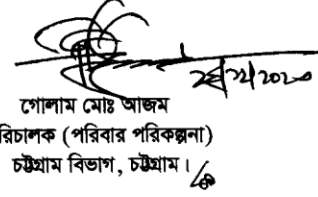 গোলাম মোঃ আজম
রিচালক (পরিবার পরিকল্পনা)
চট্টগ্রাম বিভাগ, চট্টগ্রাম।